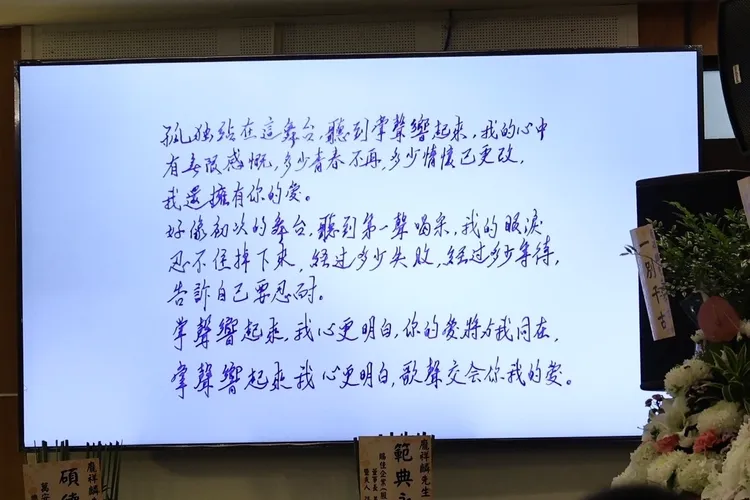 孤独站在這舞台,聽到掌聲響起來,我的心中
有无限感慨,多少青春不再,多少情懷已更改,
我還擁有你的愛。
好像初次的舞台,聽到第一聲喝采,我的眼淚
忍不住掉下來,經过多少失败,經过多少等待,
告訴自己要忍耐。
掌聲響起來,我心更明白,你的愛將与我同在,
掌聲響起來我心更明白,歌聲交会你我的愛。
一別千古
龐祥麟
碩
萬安
範典
龐祥麟先生